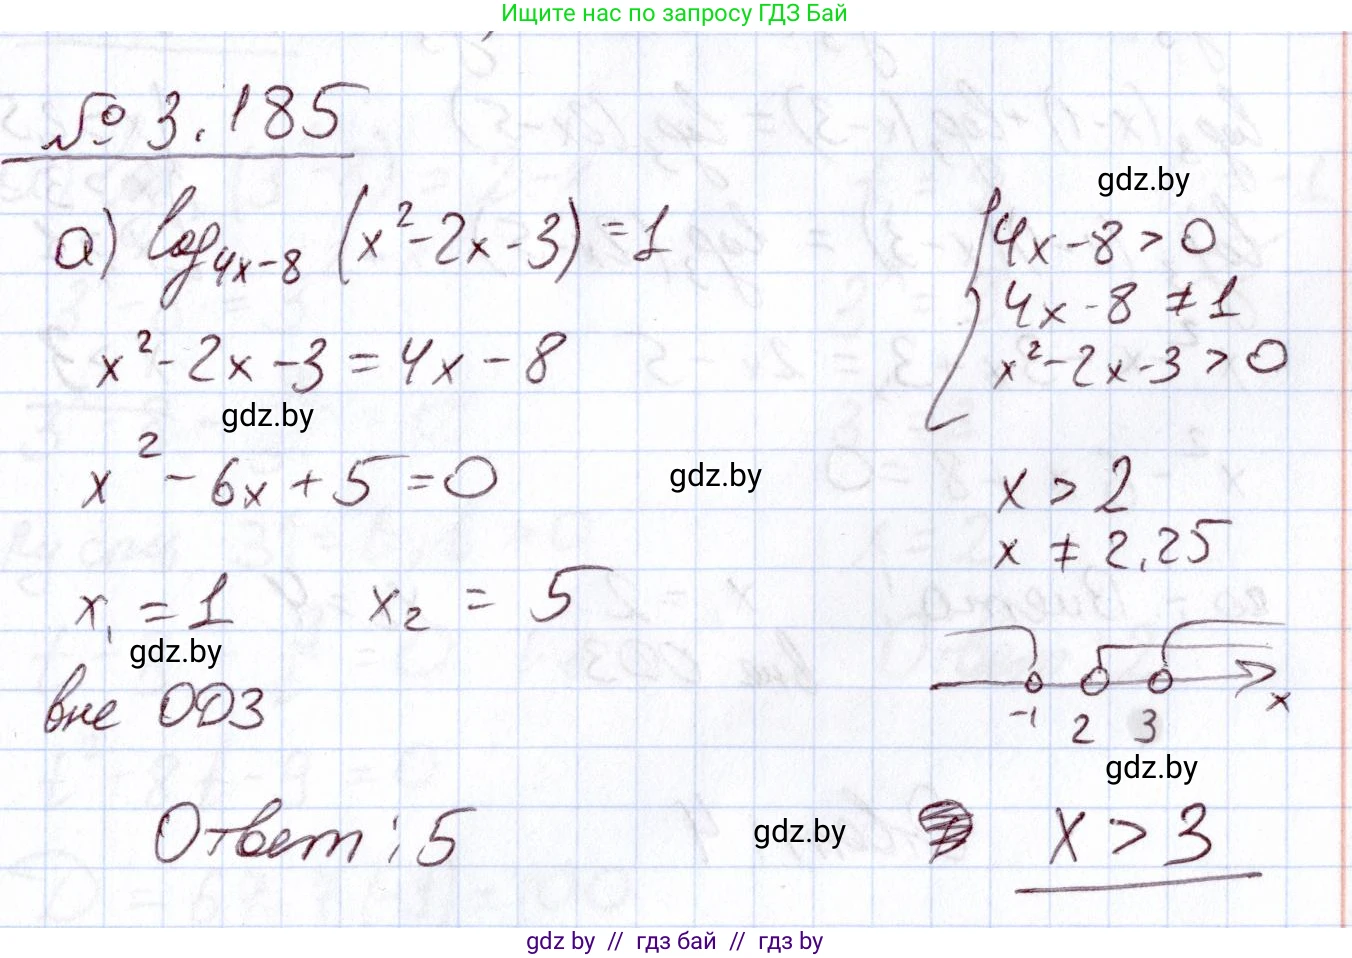 Ищите нас по запросу ГДЗ Бай
№ 3.185
gdz.by
а) log₄ₓ₋₈ (x² - 2x - 3) = 1
4x - 8 > 0
4x - 8 ≠ 1
x² - 2x - 3 > 0
x² - 2x - 3 = 4x - 8
gdz.by
x² - 6x + 5 = 0
gdz.by
x > 2
x ≠ 2,25
x₁ = 1 x₂ = 5
gdz.by
вне ОДЗ
-1 2 3 x
gdz.by
Ответ: 5
gdz.by
x > 3
gdz by // гдз бай // гдз by